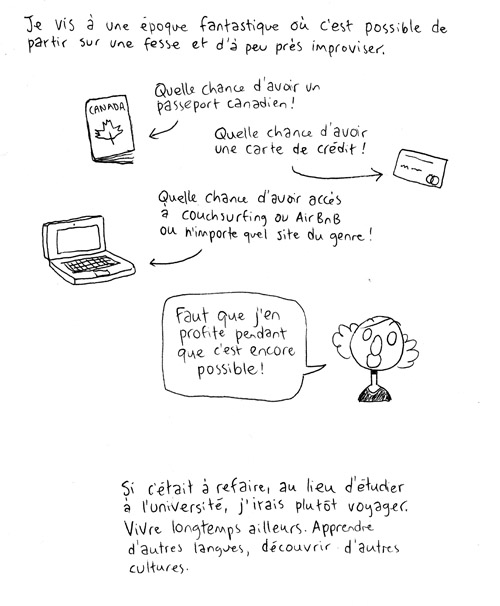 Je vis à une époque fantastique où c'est possible de
partir sur une fesse et d'à peu près improviser.
Quelle chance d'avoir un
passeport canadien!
CANADA
Quelle chance d'avoir
une carte de crédit!
Quelle chance d'avoir accès
à couchsurfing ou AirBnB
ou n'importe quel site du genre!
Faut que j'en
profite pendant
que c'est encore
possible!
Si c'était à refaire, au lieu d'étudier
à l'université, j'irais plutôt voyager.
Vivre longtemps ailleurs. Apprendre
d'autres langues, découvrir d'autres
cultures.